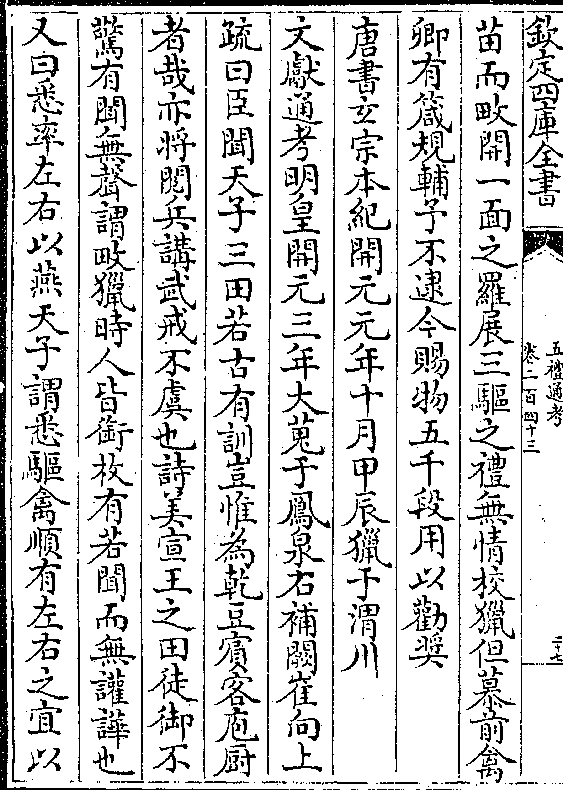 欽定四庫全書
五禮通考
卷二百四十三
二十七
苗而畋開一面之羅展三驅之禮無情校獵但慕前禽
卿有箴規輔予不逮今賜物五千段用以勸奨
唐書玄宗本紀開元元年十月甲辰獵于渭川
文獻通考明皇開元三年大蒐于鳳泉右補闕崔向上
疏曰臣聞天子三田若古有訓豈惟為乾豆賓客庖厨
者哉亦將閱兵講武戒不虞也詩美宣王之田徒御不
驚有聞無聲謂畋獵時人皆銜枚有若聞而無讙譁也
又曰悉率左右以燕天子謂悉驅禽順有左右之宜以